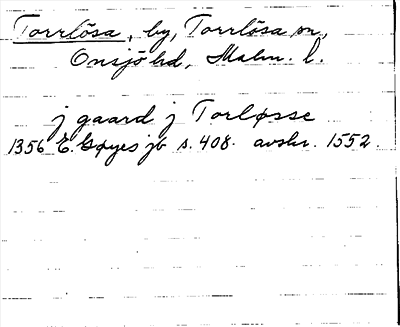 Torrlösa, by, Torrlösa sn,
Onsjö hd, Malm. l.
j gaard j Torløsse
1356 E. Gøyes jb s. 408. avskr. 1552.